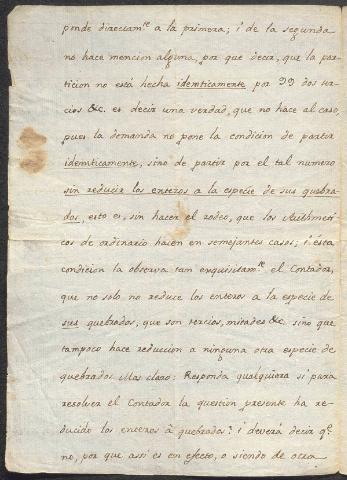 ponde directam.te a la primera; i de la segunda
no hace mencion alguna, por que decir, que la par-
ticion no está hecha idemticamente por 99 dos ter-
cios &c. es decir una verdad, que no hace al caso,
pues la demanda no pone la condicion de partir
idemticamente, sino de partir por el tal numero
sin reducir los enteros a la especie de sus quebra-
dos, esto es, sin hacer el rodeo, que los Arithmeti-
cos de ordinario hacen en semejantes casos; i esta
condicion la observa tam exquisitam.te el Contador,
que no solo no reduce los enteros a la especie de
sus quebrados, que son tercios, mitades &c. sino que
tampoco hace reduccion a ninguna otra especie de
quebrados. Mas claro: Responda qualquiera si para
resolver el Contador la question presente ha re-
ducido los enteros à quebrados? i deverá decir q.e
no, por que assi es en efecto, o siendo de otra